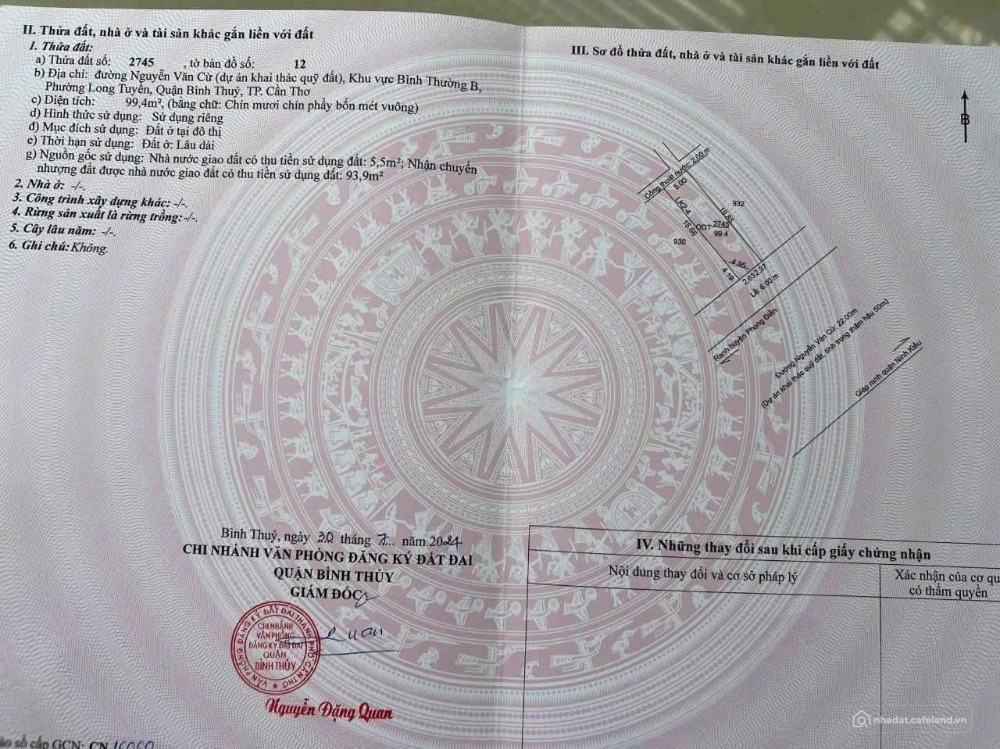 II. Thửa đất, nhà ở và tài sản khác gắn liền với đất
1. Thửa đất:
a) Thửa đất số: 2745 , tờ bản đồ số: 12
b) Địa chỉ: đường Nguyễn Văn Cừ (dự án khai thác quỹ đất), Khu vực Bình Thường B,
Phường Long Tuyền, Quận Bình Thuỷ, TP. Cần Thơ
c) Diện tích: 99,4m², (bằng chữ: Chín mươi chín phẩy bốn mét vuông)
d) Hình thức sử dụng: Sử dụng riêng
đ) Mục đích sử dụng: Đất ở tại đô thị
e) Thời hạn sử dụng: Đất ở: Lâu dài
g) Nguồn gốc sử dụng: Nhà nước giao đất có thu tiền sử dụng đất: 5,5m²; Nhận chuyển
nhượng đất được nhà nước giao đất có thu tiền sử dụng đất: 93,9m²
2. Nhà ở: -/-.
3. Công trình xây dựng khác: -/-.
4. Rừng sản xuất là rừng trồng: -/-.
5. Cây lâu năm: -/-.
6. Ghi chú: Không.
III. Sơ đồ thửa đất, nhà ở và tài sản khác gắn liền với đất
B
Cống thoát nước: 2.00 m
5.00
932
LK2-4
15.66
ODT 2745
99.4
930
4.95
4.19
2.63
Lề: 6.00 m
Ranh huyện Phong Điền
Đường Nguyễn Văn Cừ: 22.00m
(Dự án khai thác quỹ đất, tính trong thâm hậu 50m)
Giáp ranh quận Ninh Kiều
Bình Thuỷ, ngày 30 tháng 7 năm 2024
CHI NHÁNH VĂN PHÒNG ĐĂNG KÝ ĐẤT ĐAI
QUẬN BÌNH THỦY
GIÁM ĐỐC
VĂN PHÒNG ĐĂNG KÝ ĐẤT ĐAI THÀNH PHỐ CẦN THƠ
CHI NHÁNH
VĂN PHÒNG
ĐĂNG KÝ ĐẤT ĐAI
QUẬN
BÌNH THỦY
Nguyễn Đặng Quan
IV. Những thay đổi sau khi cấp giấy chứng nhận
Nội dung thay đổi và cơ sở pháp lý
Xác nhận của cơ qu
có thẩm quyền
số cấp GCN: CN
nhadat.cafeland.vn